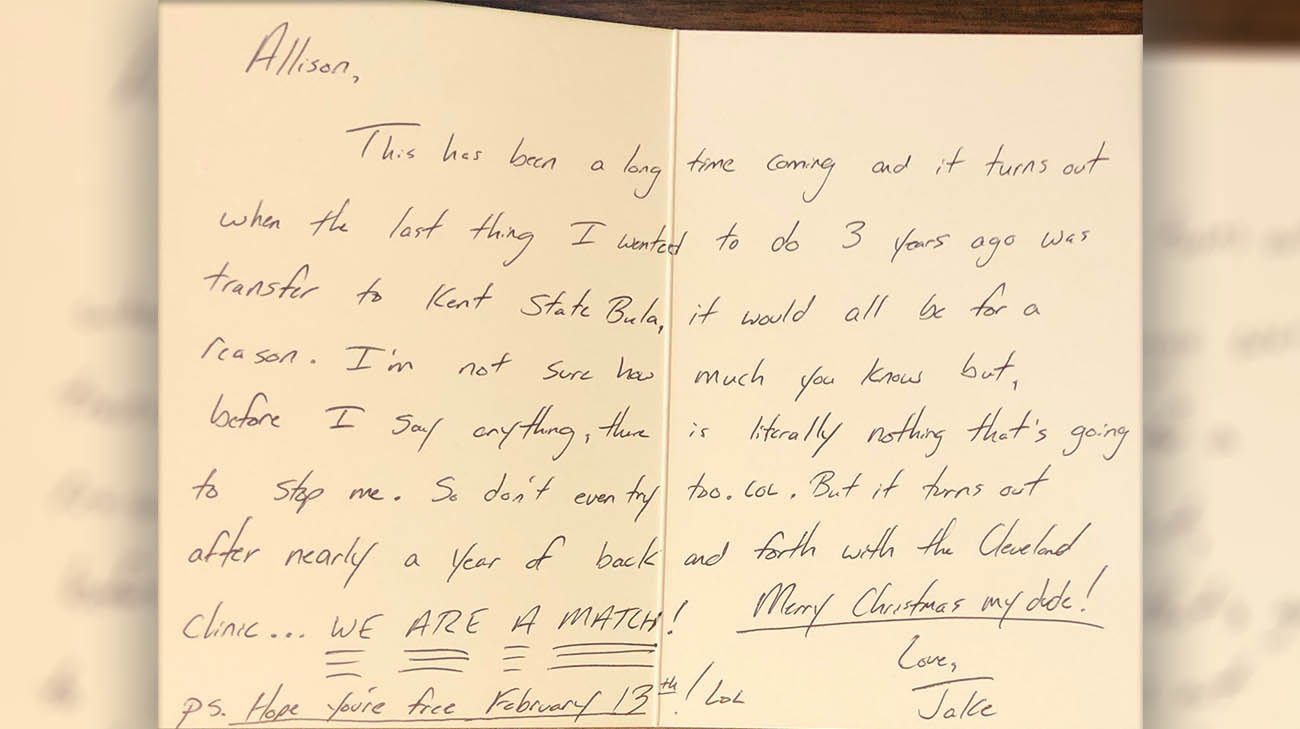 Allison,
This has been a long time coming and it turns out
when the last thing I wanted to do 3 years ago was
transfer to Kent State Bula, it would all be for a
reason. I'm not sure how much you know but,
before I say anything, there is literally nothing that's going
to stop me. So don't even try too. LOL. But it turns out
after nearly a year of back and forth with the Cleveland
Clinic... WE ARE A MATCH!
Merry Christmas my dude!
Love,
Jake
PS. Hope you're free February 13th! LOL